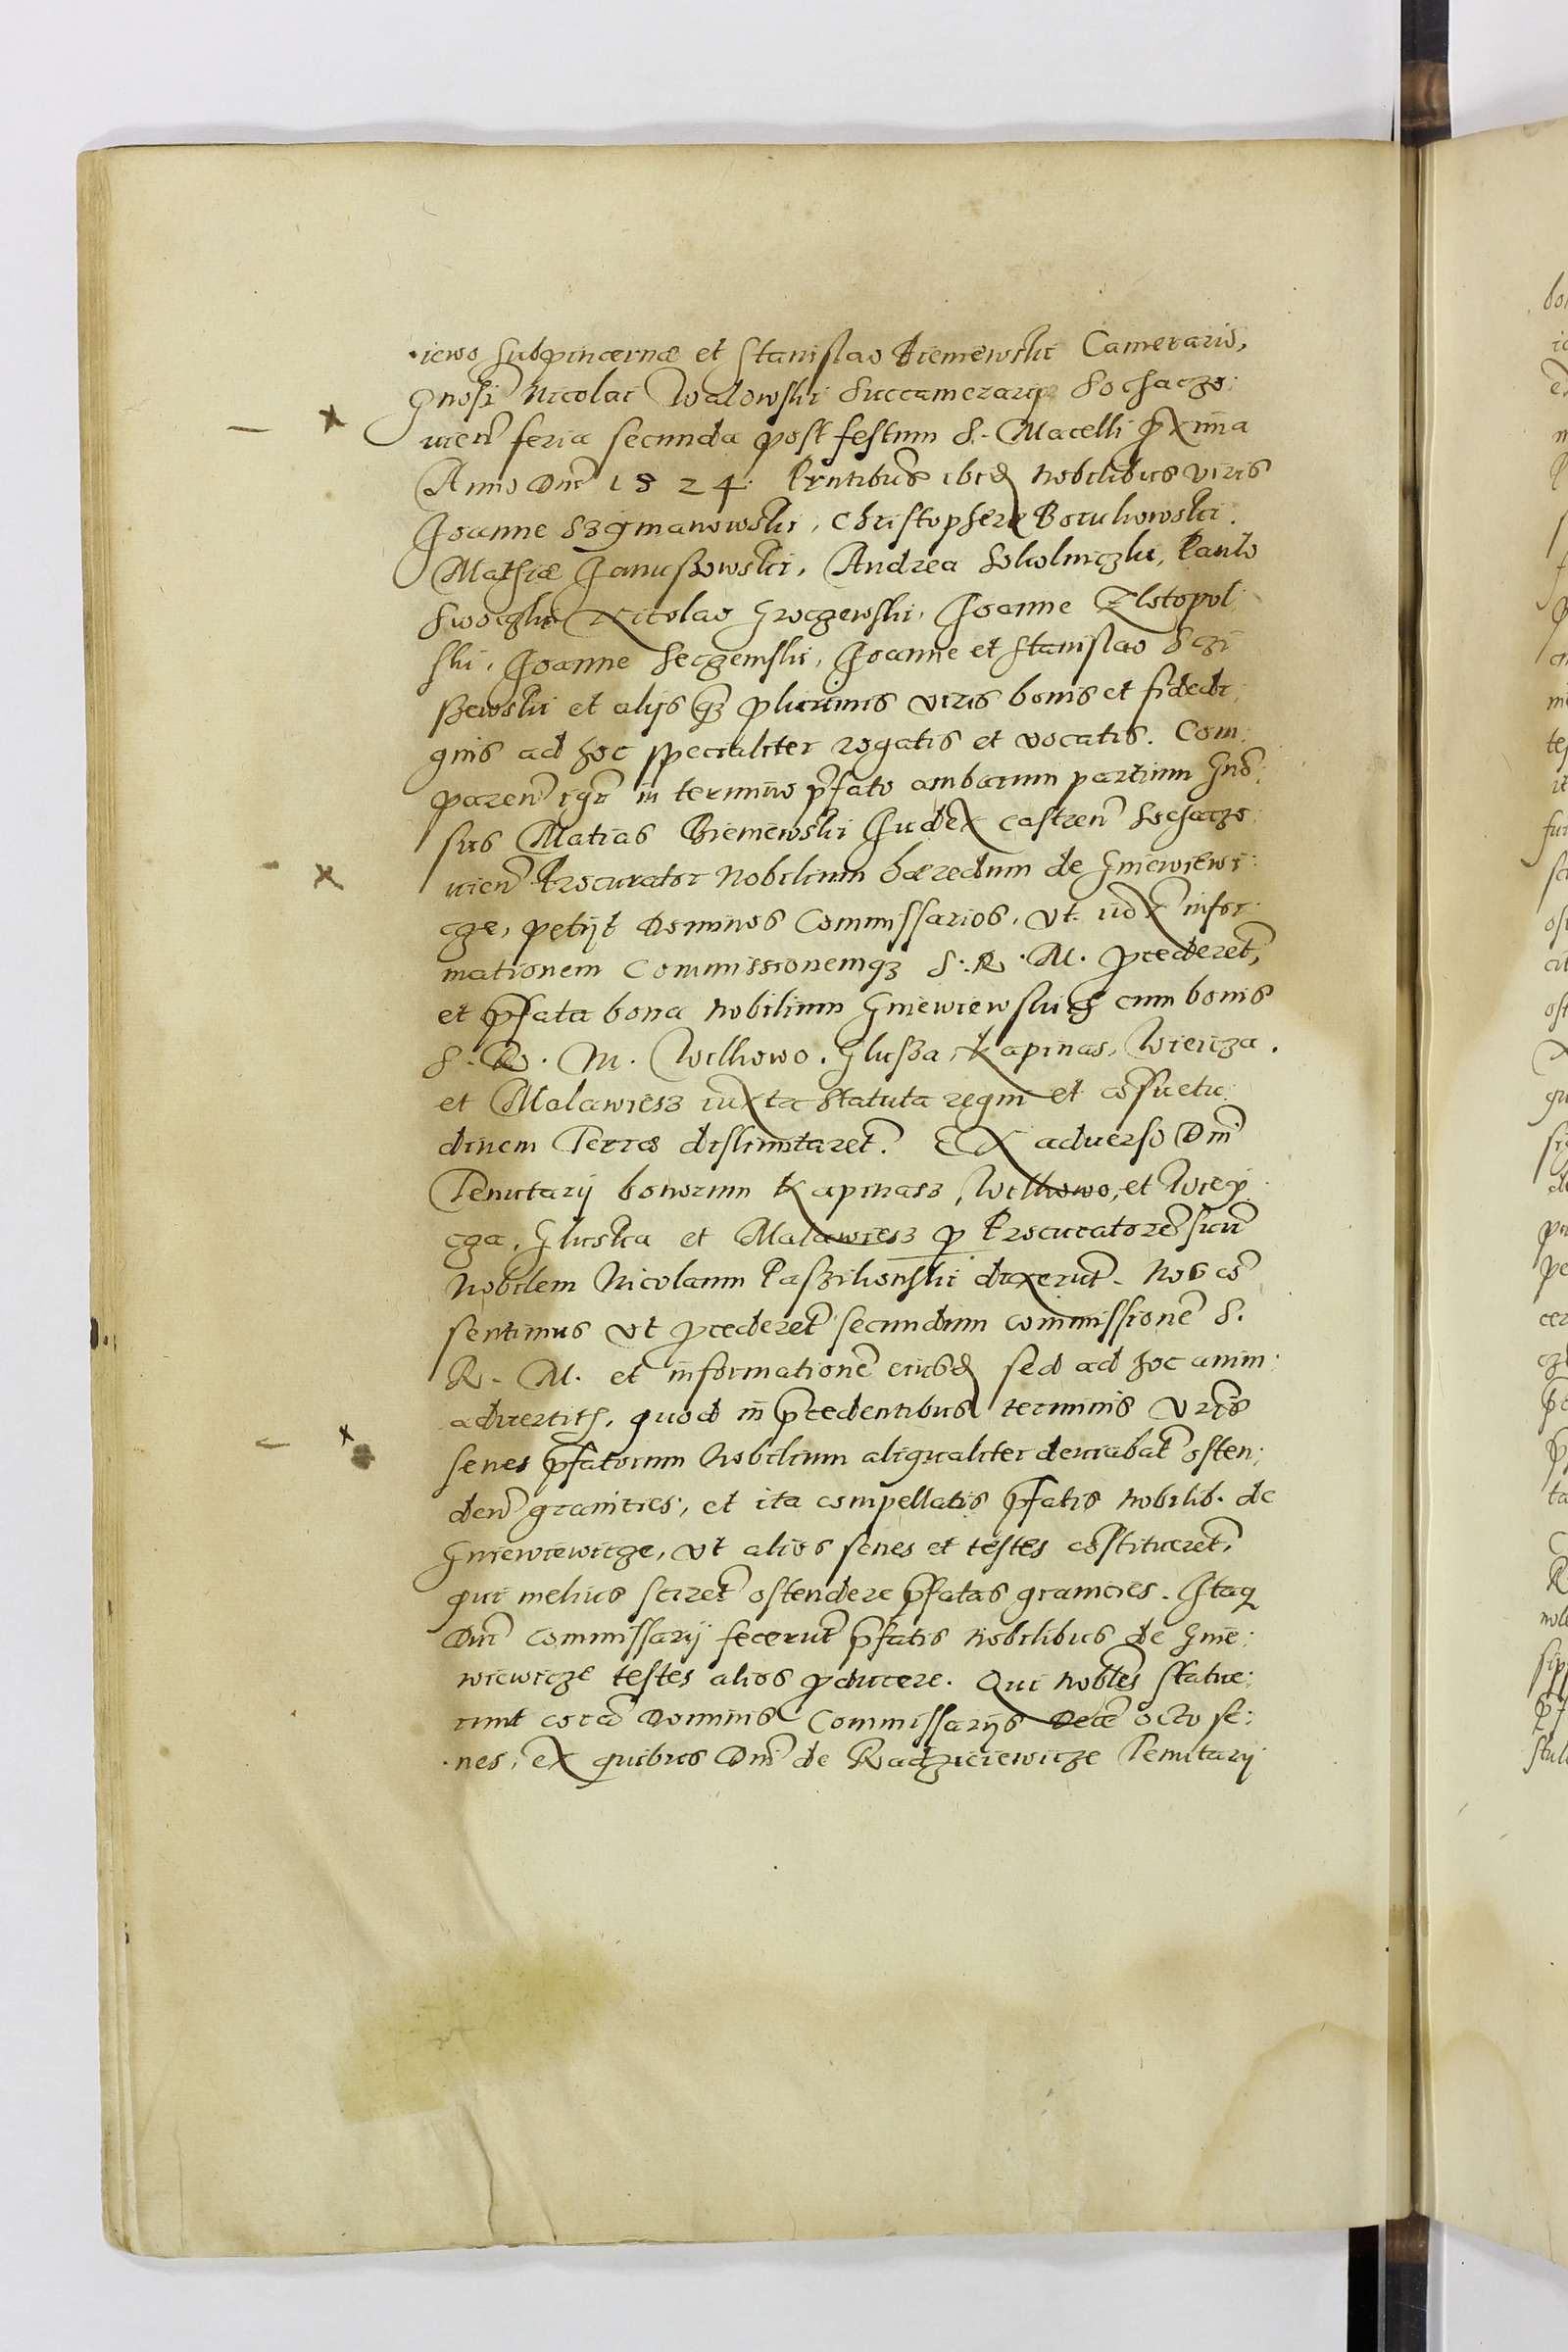 iewo Subpincernæ et Stanislao Biemewski Camerario,
Gnosi Nicolai Walowski Succamerarij Sochaczo:
uien feria secunda post festum S. Macelli pxima
Anno Dni 1524. Pntibus ibid Nobilibus viris
Joanne Szymanowski, Christophero Boruhowski.
Mathiæ Janußowski, Andrea Sokolniczki, Paulo
Swoczki Nicolao Groczewski, Joanne Zlotopol
ski, Joanne Seczemski, Joanne et Stanislao Sczi
ßewski et alijs qz plurimis viris bonis et fidedi:
gnis ad hoc specialiter rogatis et vocatis. Com:
paren igr in termino pfato ambarum partium Gno:
sus Matias Biemewski Judex castren Sochaczo:
uien Procurator Nobilium hæredum de Gniewiewi:
cze, petijt Dominos Commissarios, vt iux infor:
mationem Commissionemqz S. R. M. pcederet,
et pfata bona Nobilium Gniewiewskich cum bonis
S. R. M. Wilkowo. Glußa, Kapinas, Wieicza.
et Malawiesz iuxta Statuta regni et csuetu:
dinem Terræ dislimitaret. Ex aduerso Dni
Tenutarij bonorum Kapinasz, Wilkowo, et Wiej:
cza, Gluska et Malawiesz p Procuratore suu
Nobilem Nicolaum Paßikonski dixerut. Nos co
sentimus vt pcederet secundum commissione S.
R. M. et informatione eiusd sed ad hoc anim:
aduertith, quod in pcedentibus terminis Vris
senes pfatorum Nobilium aliqualiter deuiabat osten:
den granities, et ita compellatis pfatis Nobilib. de
Gniewiewicze, vt alios senes et testes costitueret,
qui melius sciret ostendere pfatas granicies. Itaq
Dni Commissarij fecerut pfatis Nobilibus de Gnie:
wiewicze testes alios pducere. Qui Nobles statue:
runt cora Dominis Commissarijs Dece octo se:
nes, ex quibus Dni de Radzieiewicze Tenutarij